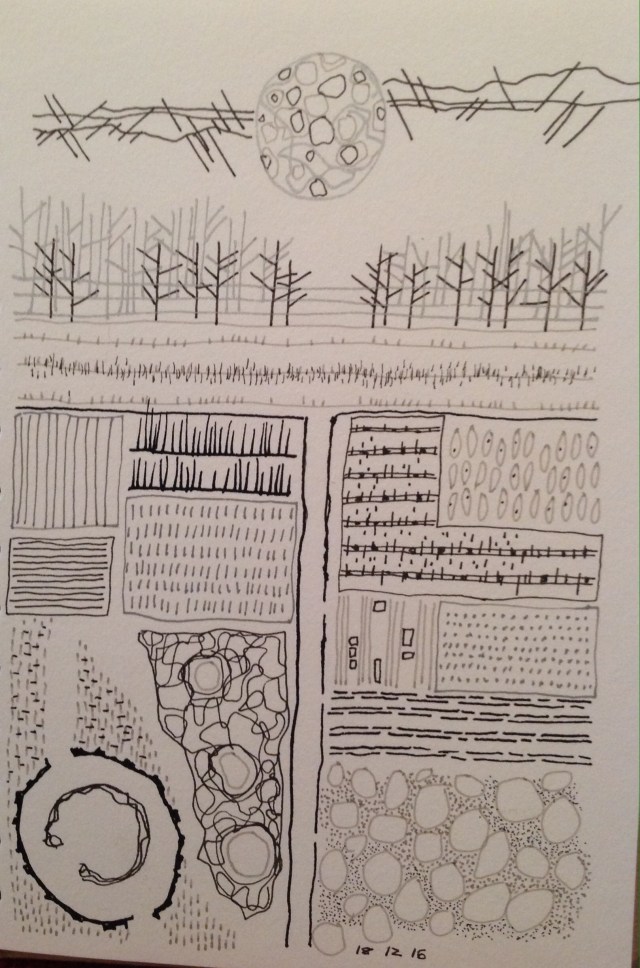 18 12 16